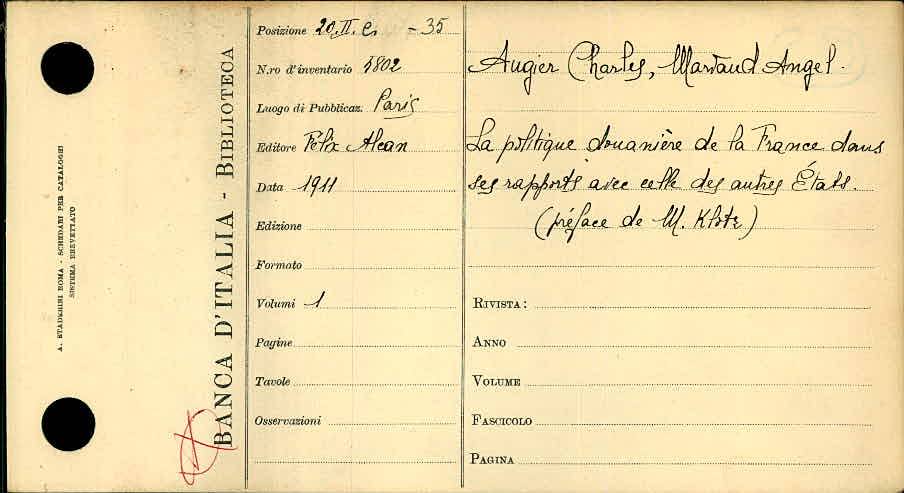 A. STADERINI ROMA - SCHEDARI PER CATALOGHI
SISTEMA BREVETTATO
BANCA D'ITALIA - BIBLIOTECA
Posizione 20.II.C. - 35
N.ro d'inventario 4802
Luogo di Pubblicaz. Paris
Editore Félix Alcan
Data 1911
Edizione
Formato
Volumi 1
Pagine
Tavole
Osservazioni
Augier Charles, Marvaud Angel.
La politique douanière de la France dans
ses rapports avec celle des autres États.
(préface de M. Klotz)
RIVISTA:
ANNO
VOLUME
FASCICOLO
PAGINA